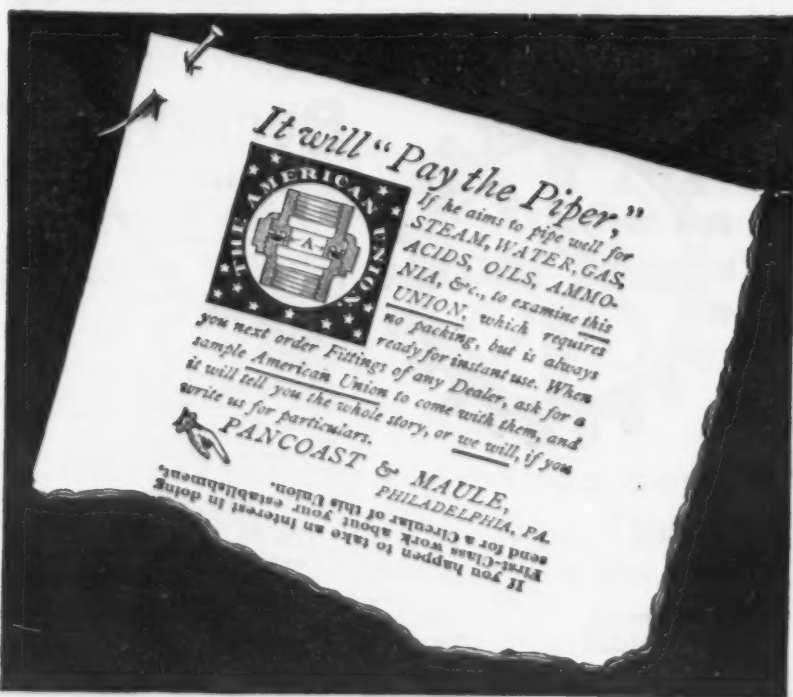 It will “Pay the Piper,”
THE AMERICAN UNION
A
If he aims to pipe well for
STEAM, WATER, GAS,
ACIDS, OILS, AMMO-
NIA, &c., to examine this
UNION, which requires
no packing, but is always
ready for instant use. When
you next order Fittings of any Dealer, ask for a
sample American Union to come with them, and
it will tell you the whole story, or we will, if you
write us for particulars.
PANCOAST & MAULE,
PHILADELPHIA, PA.
If you happen to take an interest in doing
First-Class work about your establishment,
send for a Circular of this Union.